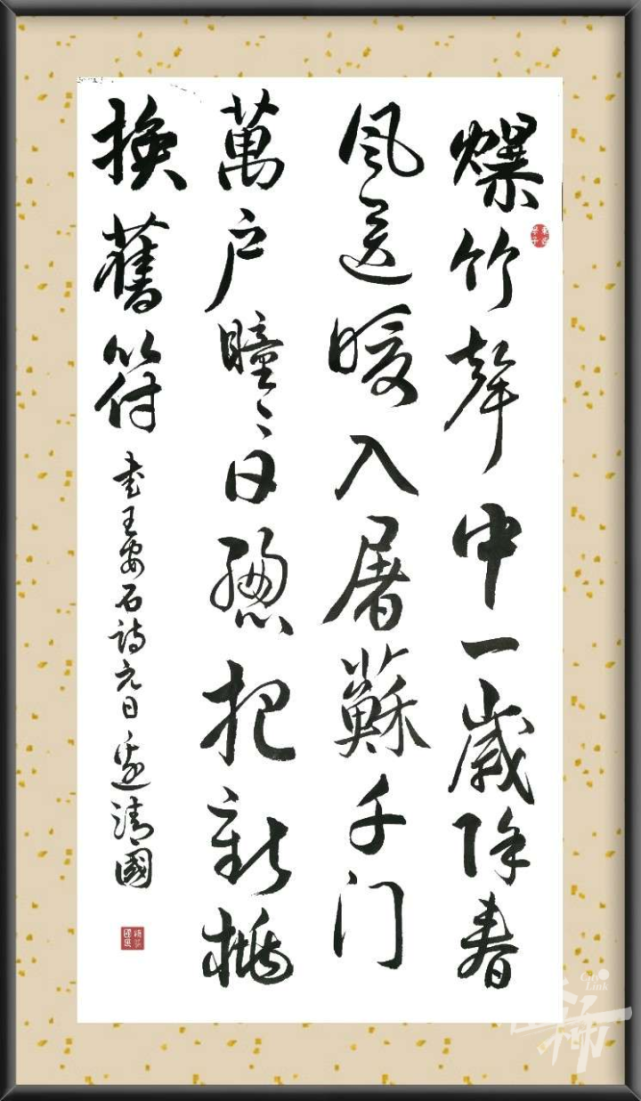 爆竹聲中一歲除春
风送暖入屠蘇千门
萬户瞳〻日總把新桃
換舊符
书王安石詩元日 清國
Link